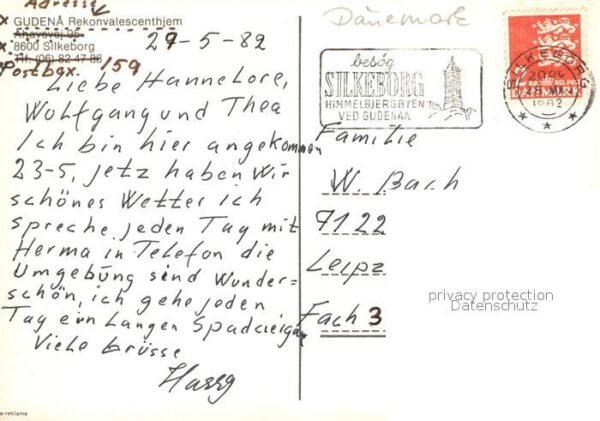 Adresse
x GUDENÅ Rekonvalescenthjem
x Åhavevej 95
x 8600 Silkeborg
Tlf. (06) 82 47 86
Postbox. 159
29-5-82
Liebe Hannelore,
Wolfgang und Thea
Ich bin hier angekommen
23-5, jetz haben Wir
schönes Wetter ich
spreche jeden Tag mit
Herma in Telefon die
Umgebüng sind Wunder-
schön, ich gehe jeden
Tag ein Langen Spadzeigang
Viele Grüsse
Dänemark
besøg
SILKEBORG
HIMMELBJERGBYEN
VED GUDENAA
SILKEBORG
1982
DANMARK
Familie
W. Bach
7122
Leipz
Fach 3
privacy protection
Datenschutz